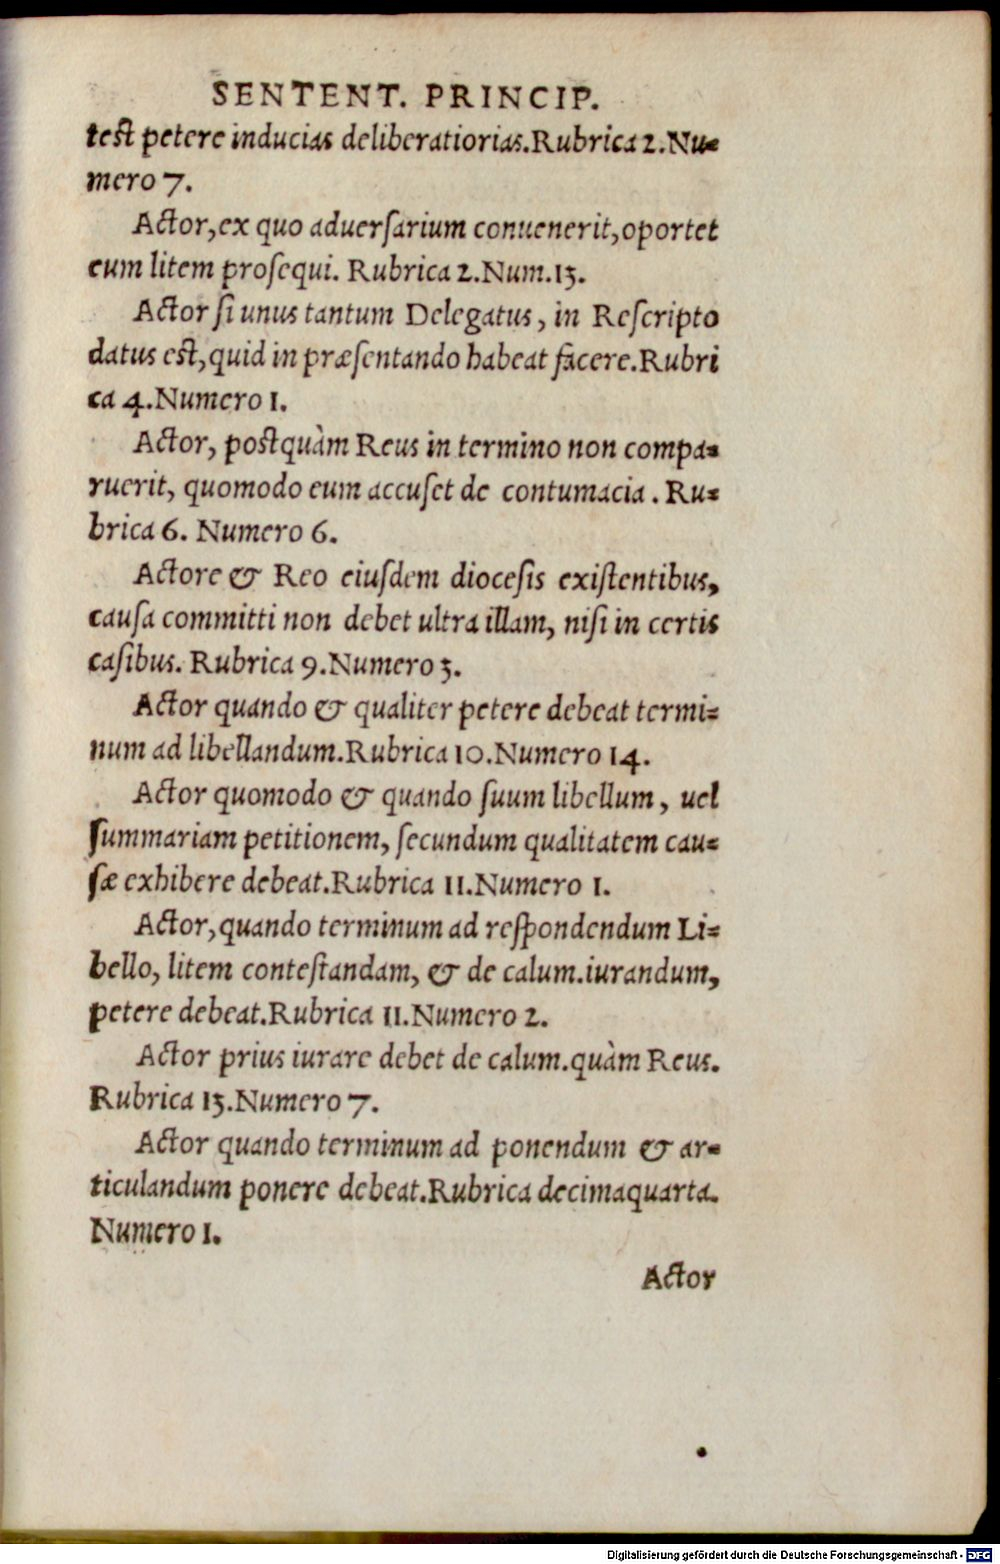 SENTENT. PRINCIP.
test petere inducias deliberatiorias.Rubrica 2.Nu=
mero 7.
Actor,ex quo aduerſarium conuenerit,oportet
eum litem proſequi. Rubrica 2.Num.13.
Actor ſi unus tantum Delegatus, in Reſcripto
datus est,quid in præſentando habeat facere.Rubri
ca 4.Numero 1.
Actor, postquàm Reus in termino non compa=
ruerit, quomodo eum accuſet de contumacia. Ru=
brica 6. Numero 6.
Actore & Reo eiuſdem dioceſis exiſtentibus,
cauſa committi non debet ultra illam, niſi in certis
caſibus. Rubrica 9.Numero 3.
Actor quando & qualiter petere debeat termi=
num ad libellandum.Rubrica 10.Numero 14.
Actor quomodo & quando ſuum libellum, uel
ſummariam petitionem, ſecundum qualitatem cau=
ſæ exhibere debeat.Rubrica 11.Numero 1.
Actor,quando terminum ad reſpondendum Li=
bello, litem conteſtandam, & de calum.iurandum,
petere debeat.Rubrica 11.Numero 2.
Actor prius iurare debet de calum.quàm Reus.
Rubrica 13.Numero 7.
Actor quando terminum ad ponendum & ar=
ticulandum ponere debeat.Rubrica decimaquarta.
Numero 1.
Actor
Digitalisierung gefördert durch die Deutsche Forschungsgemeinschaft - DFG